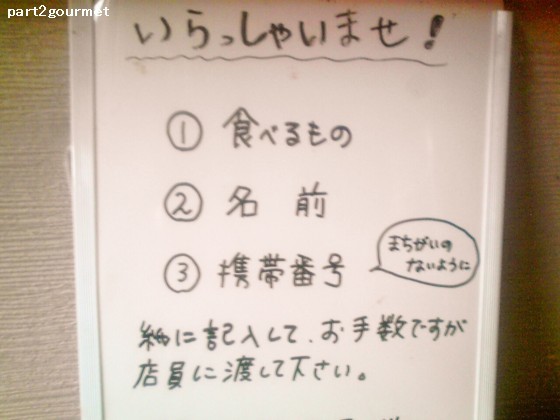 part2gourmet
いらっしゃいませ!
① 食べるもの
② 名 前
③ 携帯番号
まちがいの
ないように
紙に記入して、お手数ですが
店員に渡して下さい。